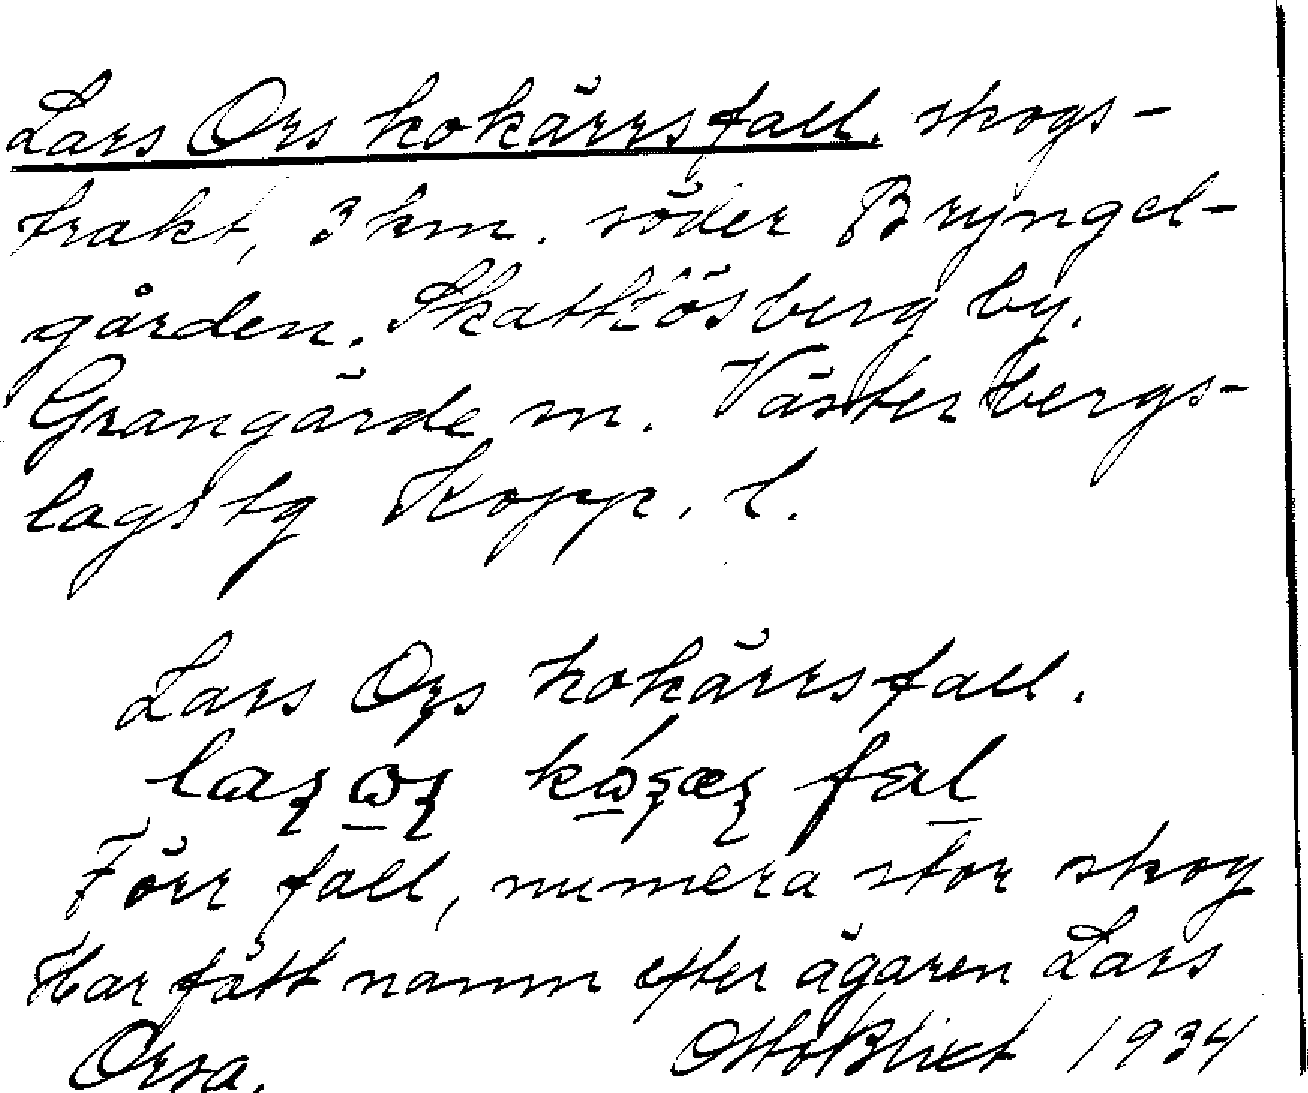 Lars Ors kokärrsfall. skogs-
trakt, 3 km. söder Bryngel-
gården. Skattlösberg by.
Grangärde sn. Västerbergs-
lags tg Kopp. l.
Lars Ors kokärrsfall.
Förr fall, numera stor skog
Har fått namn efter ägaren Lars
Orsa. Otto Blixt 1934